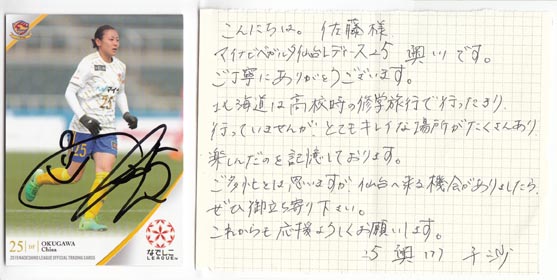 こんにちは。佐藤様
マイナビベガルタ仙台レディース25 奥川です。
ご丁寧にありがとうございます。
北海道は高校時の修学旅行で行ったきり、
行っていませんが、とてもキレイな場所がたくさんあり
楽しんだのを記憶しております。
ご多忙とは思いますが仙台へ来る機会がありましたら、
ぜひ御立ち寄り下さい。
これからも応援よろしくお願いします。
25 奥川 千沙
25
25
25 DF OKUGAWA
Chisa
2019 NADESHIKO LEAGUE OFFICIAL TRADING CARDS
なでしこ
LEAGUE